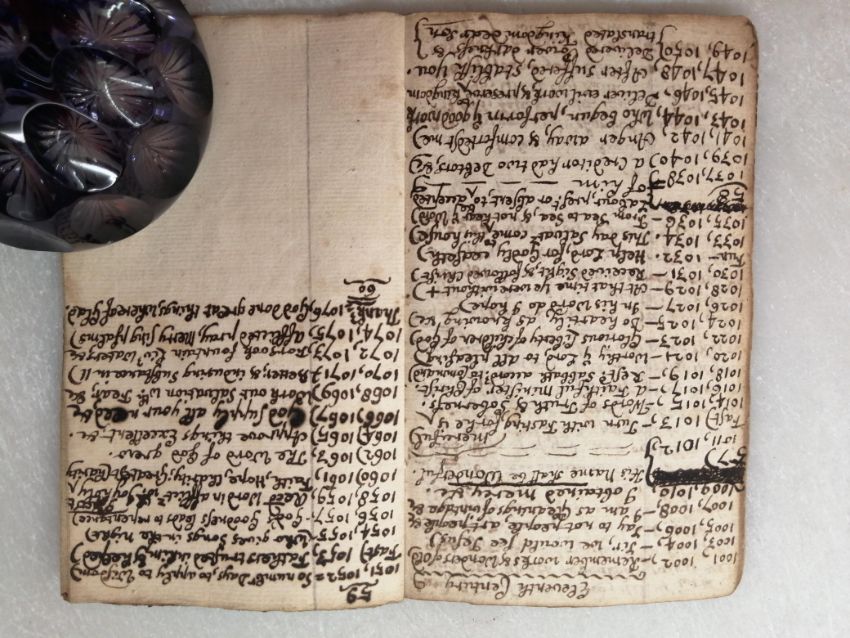 Eleventh Century
1001, 1002, Remember works & Wonders of old
1003, 1004, — Sir, we would see Jesus)
1005, 1006, — Joy to not people art people &c
1007, 1008, — I am as Gleanings of vintage &c
1009, 1010, Obtained mercy &c
57) His Name shall be Wonderful.
1011, 1012} merciful
Fast) 1013, — Turn with Fasting, for he is
1014, 1015, — Words of Truth & Soberness.
1016, 1017, — a Faithful minister of Christ.
1018, 1019, — Rest Sabbath accordg to Command
1020, 1021, — Worthy of Lord to all pleasing)
1022, 1023, — Glorious Liberty of children of God
1024, 1025, — Do heartily as knowing &c
1026, 1027, — In his Word do I hope)
1028, 1029 — At that time ye were without +)
1030, 1031 — Received Sight, & followed Christ
Fun— 1032. Help Lord, for Godly ceaseth)
1033, 1034, This day Salvatn come, thy house)
1035, 1036 — From Sea to Sea, & not hear ye Word)
58) Labour, present or absent, to be accepted
1037, 1038 of him
1039, 1040) a Creditor had two Debtors, &c)
1041, 1042, Anger away, & comfortedst me)
1043, 1044, Who begun, perform ye good work
1045, 1046, Deliver evil work & preserve Kingdom
1047, 1048, After suffered, stablish you.
1049, 1050) Delivered power darkness &
translated Kingdom dear Son
59
1051, 1052 = So numb Days, to apply to Wisdom)
Fast) 1053, Fathers trusted in thee,
1054, 1055, Who gives Songs in the night)
1056, 1057, God's Goodness leads to repentance)
1058, 1059, Recd Word in afflict.
1060, 1061, Faith, Hope, Charity; Greatest Charity
1062, 1063, The Word of God grew.
1064, 1065) Approve things Excellent &c
1066, 1067) God supply all your need &c
1068, 1069) Work out Salvation wth Fear, &c
1070, 1071 + Better, & induring Substance in H
1072, 1073, Forsook fountain Livg Waters &c
1074, 1075, Afflicted pray, Merry sing psalms)
Thanks = 1076, God done great things, whereof glad)
60